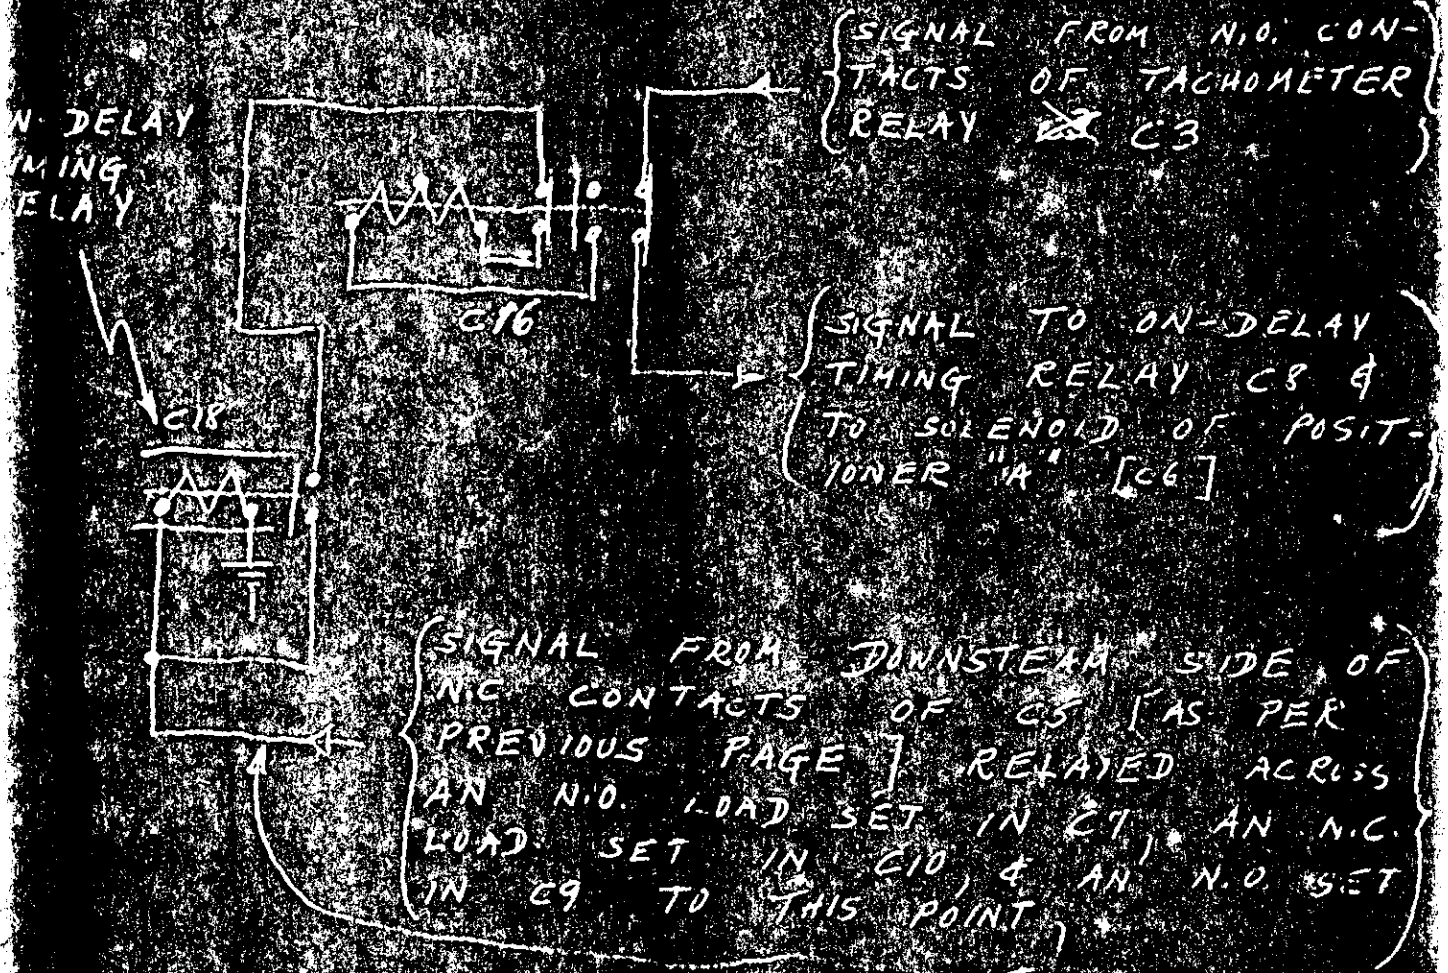 SIGNAL FROM N.O. CON-
TACTS OF TACHOMETER
RELAY C3
N-DELAY
IMING
ELAY
C16
SIGNAL TO ON-DELAY
TIMING RELAY C8 &
TO SOLENOID OF POSIT-
IONER "A" [C6]
C18
SIGNAL FROM DOWNSTEAM SIDE OF
N.C CONTACTS OF C5 [AS PER
PREVIOUS PAGE] RELAYED ACROSS
AN N.O. LOAD SET IN C7, AN N.C.
LOAD SET IN C10, & AN N.O. SET
IN C9 TO THIS POINT